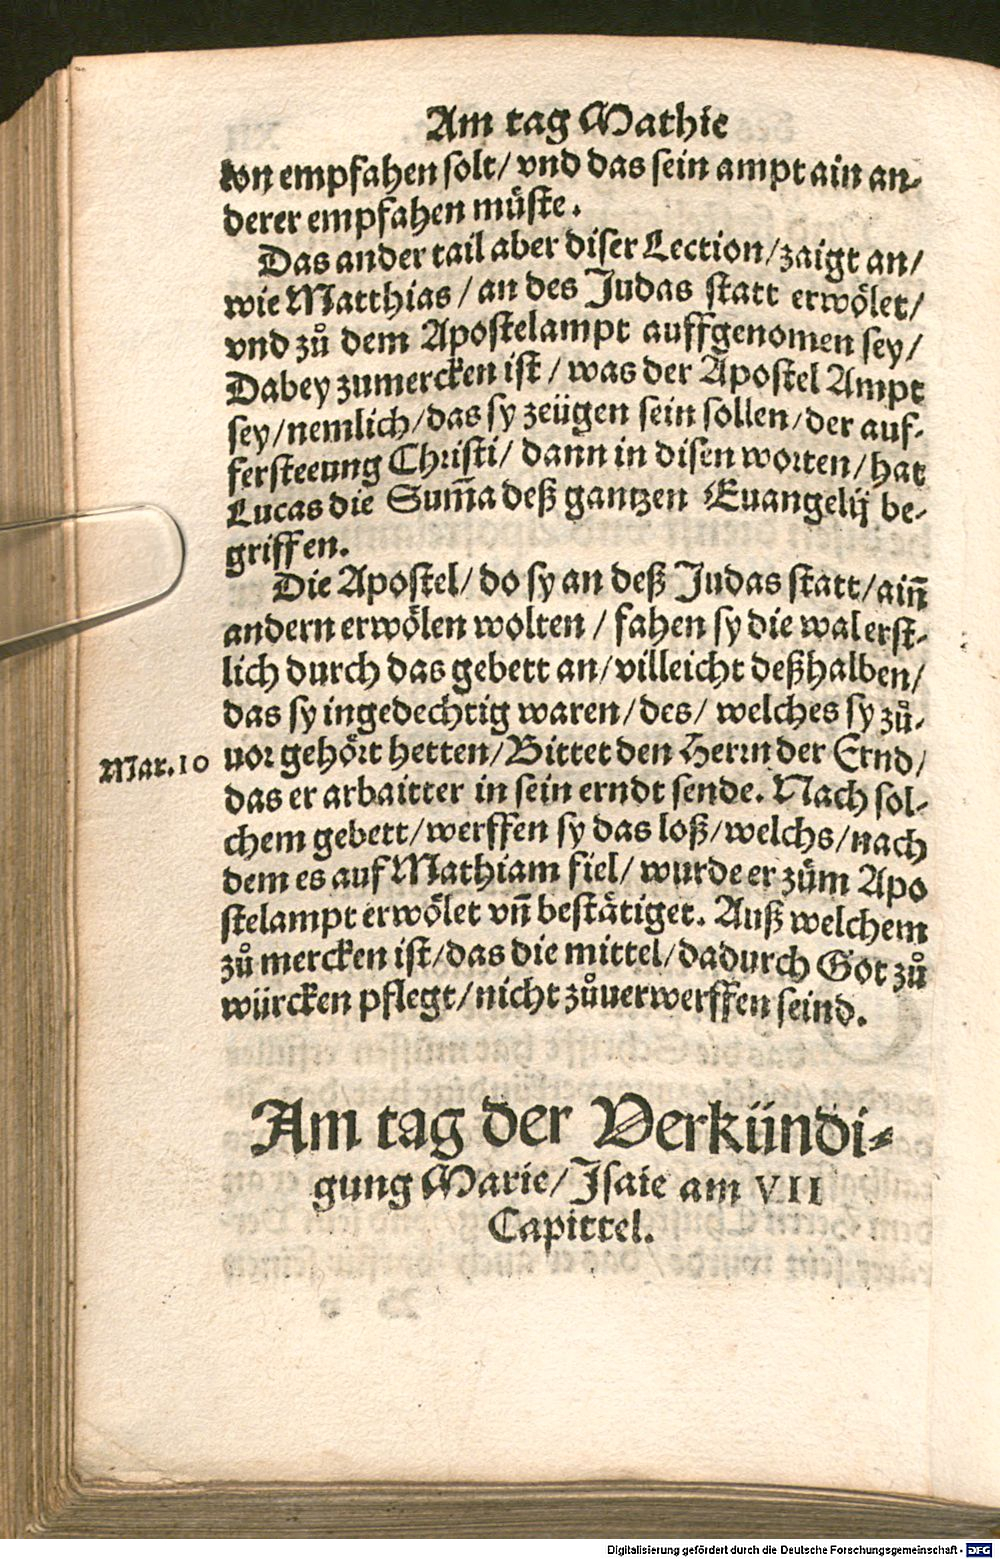 Am tag Mathie
lon empfahen solt/ vnd das sein ampt ain an-
derer empfahen muͤste.
Das ander tail aber diser Lection/zaigt an/
wie Matthias/ an des Judas statt erwoͤlet/
vnd zuͦ dem Apostelampt auffgenomen sey/
Dabey zumercken ist/ was der Apostel Ampt
sey/nemlich/das sy zeügen sein sollen/der auf-
fersteeung Christi/ dann in disen worten/hat
Lucas die Sum̃a deß gantzen Euangelij be-
griffen.
Die Apostel/ do sy an deß Judas statt/ain̄
andern erwoͤlen wolten / fahen sy die wal erst-
lich durch das gebett an/villeicht deßhalben/
das sy ingedechtig waren/des/ welches sy zuͦ-
Mar.10 uor gehoͤrt hetten/Bittet den Herrn der Ernd/
das er arbaitter in sein erndt sende. Nach sol-
chem gebett/werffen sy das loß/welchs/nach
dem es auf Mathiam fiel/ wurde er zuͦm Apo
stelampt erwoͤlet vn̄ bestaͤtiget. Auß welchem
zuͦ mercken ist/das die mittel/dadurch Got zuͦ
würcken pflegt/nicht zuͦuerwerffen seind.
Am tag der Verkündi-
gung Marie/Jsaie am VII
Capittel.
Digitalisierung gefördert durch die Deutsche Forschungsgemeinschaft - DFG